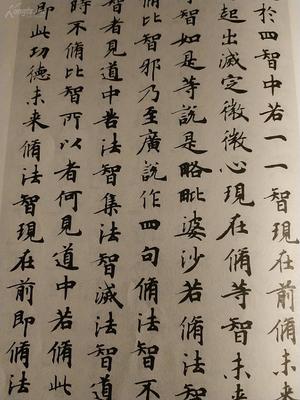 於四智中若一一智現在前即脩未來
起出滅定微微心現在脩等智未來
智如是等說是略毗婆沙若脩法智
脩比智邪乃至廣說作四句脩法智不
智者見道中苦法智集法智滅法智道
時不脩比智所以者何見道中若脩此
即此功德未來脩法智現在前即脩法